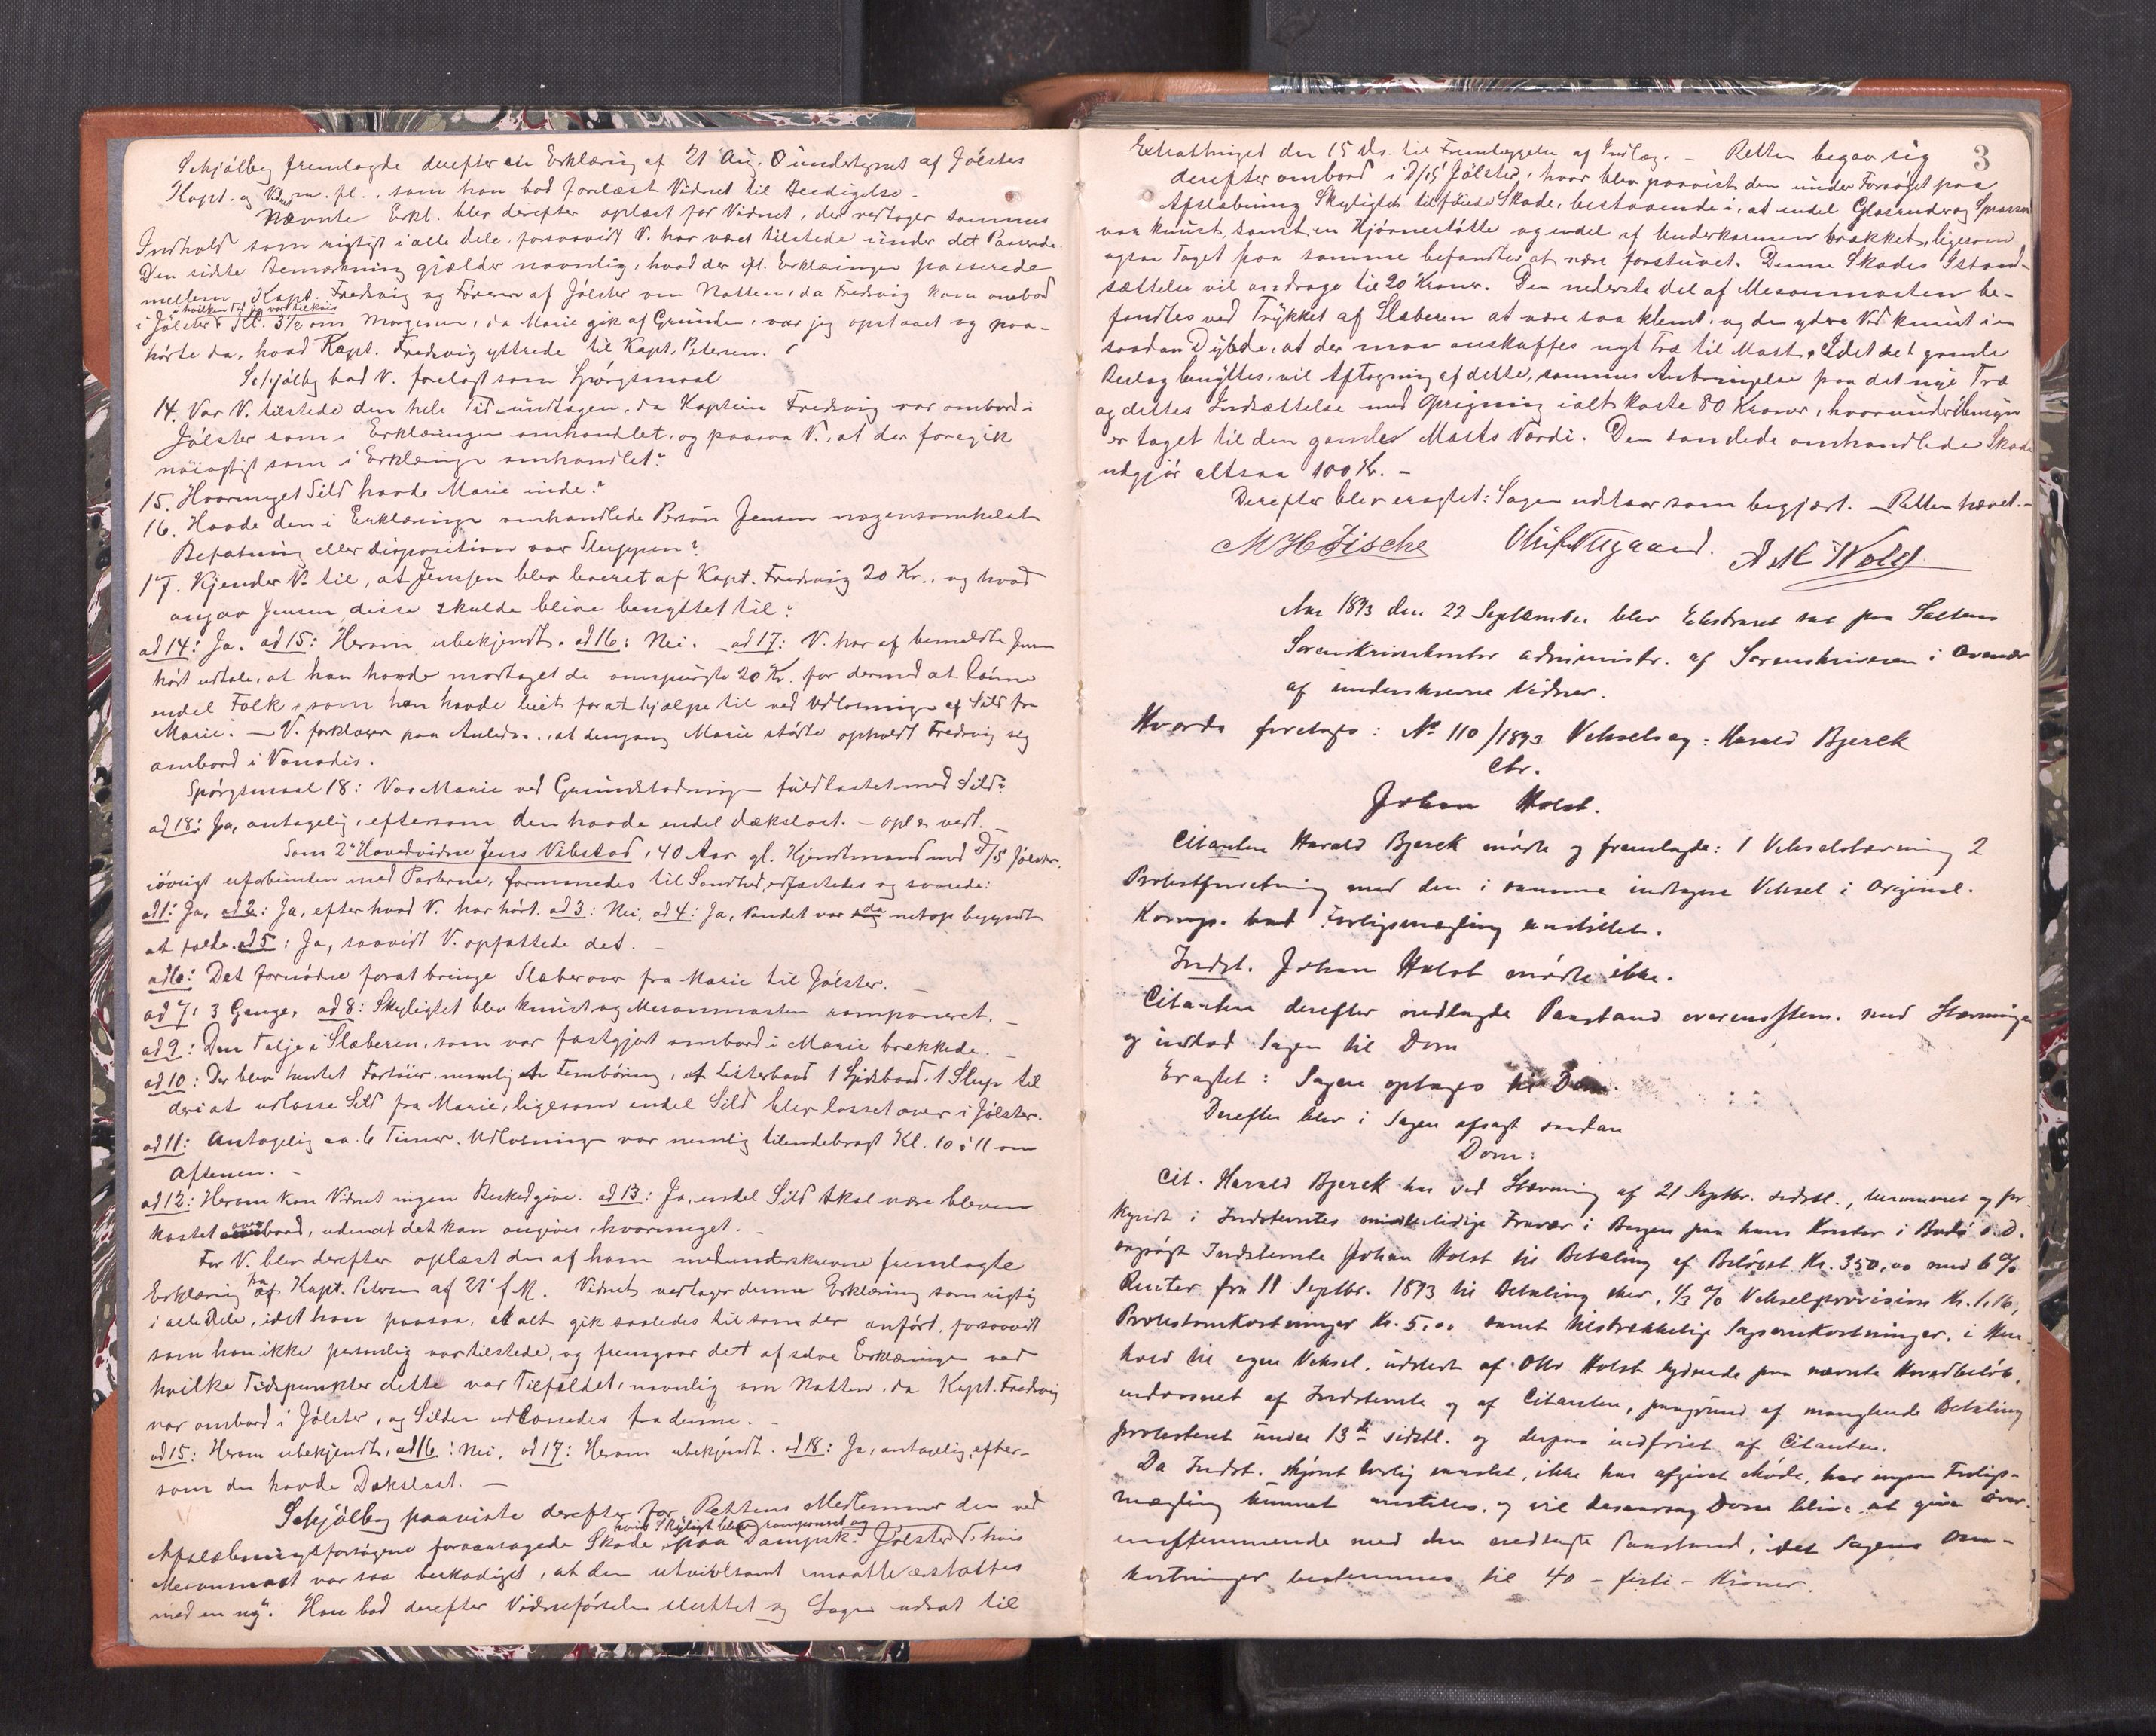 Schjölberg fremlagde derefter en Erklæring af 21 Aug. undertegnet af Jölsters
Kapt. og Vidnet m. fl., som han bad forelæst Vidnet til Beedigelse.
Nævnte Erkl. blev derefter oplæst for Vidnet, der vedtager sammes
Indhold som rigtigt i alle dele, forsaavidt V. har været tilstede under det Passerede.
Den sidste Bemærkning gjælder navnlig, hvad der ifl. Erklæringen passerede
mellem Kapt. Fredvig og Föreren af Jölster om Natten, da Fredvig kom ombord
i hvilken Tid jeg var tilköis
i Jölster. Kl. 3½ om Morgenen, da Marie gik af Grunden, var jeg opstaaet og paa-
hörte da, hvad Kapt. Fredvig yttrede til Kapt. Petersen.
Schjölberg bad V. forelagt som Spörgsmaal
14. Var V. tilstede den hele Tid undtagen, da Kaptein Fredvig var ombord i
Jölster som i Erklæringen omhandlet, og paasaa V., at der foregik
nöiagtigt som i Erklæringen omhandlet?
15. Hvormeget Sild havde Marie inde?
16. Havde den i Erklæringen omhandlede Person Jensen nogensomhelst
Befatning eller Disposition over Sluppen?
17. Kjender V. til, at Jenssen blev leveret af Kapt. Fredvig 20 Kr., og hvad
angav Jensen disse skulde blive benyttet til?
ad 14: Ja. ad 15: Herom ubekjendt. ad 16: Nei. ad 17: V. har af bemeldte Jensen
hört udtale, at han havde modtaget de omspurgte 20 Kr. for dermed at lönne
endel Folk, som han havde leiet for at hjælpe til ved Udlosningen af Sild fra
Marie. — V. forklarer paa Anledn., at dengang Marie stödte opholdt Fredvig sig
ombord i Vanadis.
Spörgsmaal 18: Var Marie ved Grundstödningen fuldlastet med Sild?
ad 18: Ja, antagelig, eftersom den havde endel dækslast. — opl. & vedt.
Som 2det Hovedvidne Jens Vibstad, 40 Aar gl. Kjendtmand med D/S Jölster.
iövrigt uforbunden med Parterne, formanedes til Sandhed, edfæstedes og svarede:
ad 1: Ja, ad 2: Ja, efter hvad V. har hört. ad 3: Nei, ad 4: Ja, Vandet var da netop begyndt
at falde. ad 5: Ja, saavidt V. opfattede det. —
ad 6: Det fornödne for at bringe Slæber over fra Marie til Jölster. —
ad 7: 3 Gange, ad 8: Skylightet blev knust og Mesanmasten ramponeret. —
ad 9: Den Talje i Slæberen, som var fastgjort ombord i Marie brækkede. —
ad 10: Der blev hentet Fartöier, nemlig en Fembøring, et Listerbaad, 1 Spidsbaad, 1 Slup til
deri at udlosse Sild fra Marie, ligesom endel Sild blev losset over i Jölster.
ad 11: Antagelig ca. 6 Timer. Udlosningen var nemlig tilendebragt Kl. 10 à 11 om
Aftenen. —
ad 12: Herom kan Vidnet ingen Besked give. ad 13: Ja, endel Sild skal være bleven
kastet overbord, uden at det kan angives, hvormeget. —
For V. blev derefter oplæst den af ham medunderskrevne fremlagte
Erklæring fra Kapt. Petersen af 21' f. M. Vidnet vedtager denne Erklæring som rigtig
i alle Dele, idet han paasaa, at alt gik saaledes til som der anfört, forsaavidt
som han ikke personlig var tilstede, og fremgaar det af selve Erklæringen ved
hvilke Tidspunkter dette var Tilfældet, navnlig om Natten, da Kapt. Fredvig
var ombord i Jölster, og Silden udlossedes fra denne. —
ad 15: Herom ubekjendt, ad 16: Nei. ad 17: Herom ubekjendt. ad 18: Ja, antagelig, efter-
som den havde Dækslast. —
Schjölberg paaviste derefter for Rettens Medlemmer den ved
hvis Skylight blev ramponeret og
Afslæbningsforsögene foraarsagede Skade paa Dampsk. Jölster, hvis
Mesanmast var saa beskadiget, at den utvivlsomt maatte erstattes
med en ny. Han bad derefter Vidneförselen sluttet og Sagen udsat til
3
Extrathinget den 15 ds. til Fremlæggelse af Indlæg. — Retten begav sig
derefter ombord i D/S Jölster, hvor blev paavist den under Forsöget paa
Afslæbning Skylightet tilföiede Skade, bestaaende i, at endel Glasruder og Sprosser
var knust, samt en Hjörnestötte og endel af Underkarmen brækket, ligesom
ogsaa Taget paa samme befandtes at være forskuvet. Denne Skades Istand-
sættelse vil andrage til 20 Kroner. Den nederste del af Mesanmasten be-
fandtes ved Trykket af Slæberen at være saa klemt, og den ydre Ved knust i en
saadan Dybde, at der maa anskaffes nyt Træ til Mast. Idet det gamle
Beslag benyttes, vil Aftagning af dette, sammes Anbringelse paa det nye Træ
og dettes Indsættelse med Oprigning ialt koste 80 Kroner, hvorunder Hensyn
er taget til den gamle Masts Værdi. Den saaledes omhandlede Skade
udgjör altsaa 100 Kr. —
Derefter blev eragtet: Sagen udstaar som begjært. — Retten hævet. —
M H Fische
A M Wold
Aar 1893 den 22 September blev Ekstraret sat paa Saltens
Sorenskriverkontor administr. af Sorenskriveren i Overvær
af underskrevne Vidner.
Hvorda foretoges: No 110/1893 Vekselsag: Harald Bjerck
ctr.
Johan Holst.
Citanten Harald Bjerck mödte og fremlagde: 1 Vekselstævning 2
Protestforretning med den i samme indtagne Veksel i Original.
Komp. bad Forligsmægling anstillet.
Indst. Johan Holst mödte ikke.
Citanten derefter nedlagde Paastand overensstem. med Stævningen
og indlod Sagen til Dom
Eragtet: Sagen optages til Dom.
Derefter blev i Sagen afsagt saadan
Dom:
Cit. Harald Bjerck har ved Stævning af 21 Septbr. sidstl., berammet og for-
kyndt i Indstevntes midlertidige Fravær i Bergen paa hans Kontor i Bodö s. D.
sagsögt Indstevnte Johan Holst til Betaling af Belöbet Kr. 350,00 med 6 %
Renter fra 11 Septbr. 1893 til Betaling sker, 1/3 % Vekselprovision Kr. 1,16,
Protestomkostninger Kr. 5,00 samt tilstrækkelige Sagsomkostninger, i Hen-
hold til egen Veksel, udstedt af Otto Holst lydende paa nævnte Hovedbelöb,
endosseret af Indstevnte og af Citanten, paagrund af manglende Betaling
protesteret under 13de sidstl. og derpaa indfriet af Citanten.
Da Indst. skjönt lovlig varslet, ikke har afgivet Möde, har ingen Forligs-
mægling kunnet anstilles, og vil desaarsag Dom blive at give over-
ensstemmende med den nedlagte Paastand, idet Sagens Om-
kostninger bestemmes til 40 – firti – Kroner.